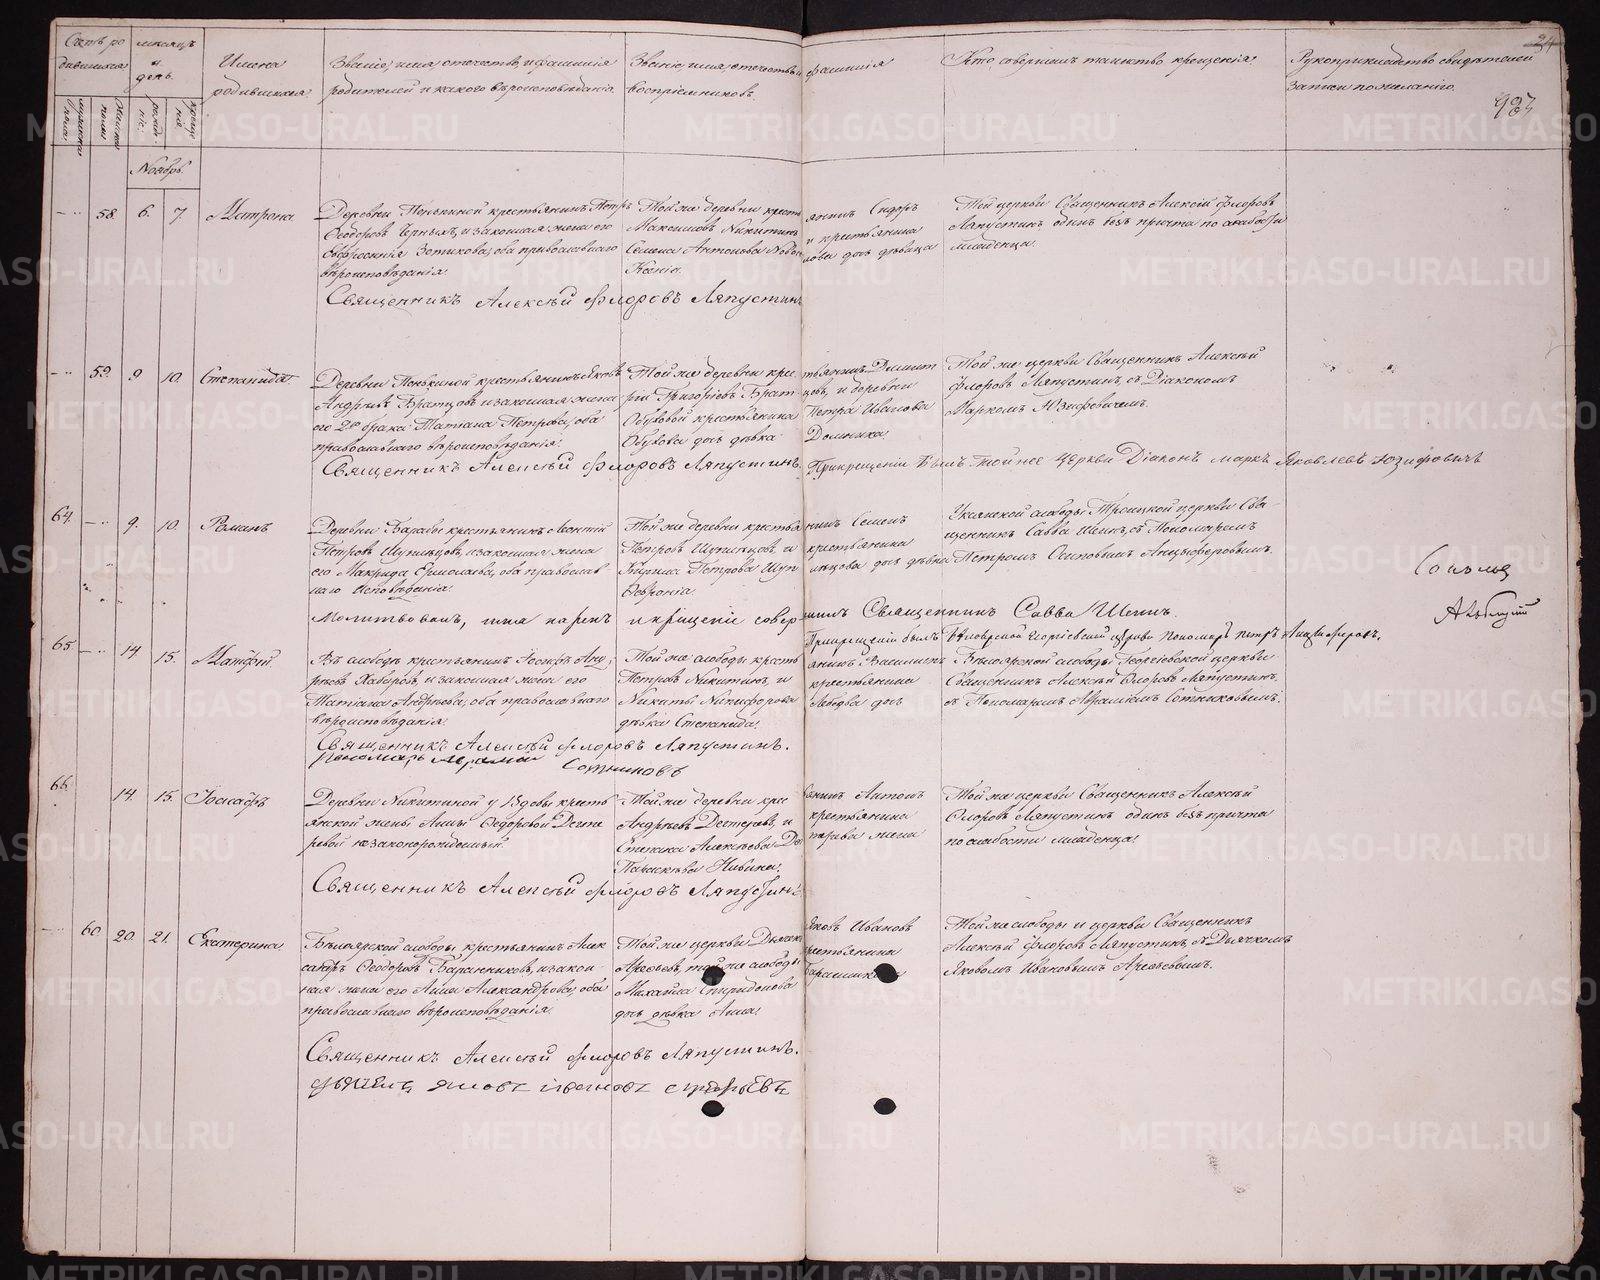 Счетъ родившихся
мужеска пола
женска полу
месяцъ и день
рожденіе
крещеніе
Имена родившихся
Званіе, имя, отечество, и фамилія
родителей и какого вѣроисповѣданія.
Званіе, имя, отечество и фамилія
воспріемниковъ.
Кто совершилъ таинство крещенія
Рукоприкладство свидѣтелей
записи по желанію.
24
Ноябрь
58. 6. 7. Матрона
Деревни Пенькиной крестьянинъ Петръ
Феодоровъ Черныхъ, и законная жена его
Евфросинія Зотикова, оба православнаго
вѣроисповѣданія.
Той же деревни крестьянинъ Сидоръ
Максимовъ Никитинъ и крестьянина
Семена Антонова дочь дѣвица
Ксенія.
Той церкви Священникъ Алексѣй Флоровъ
Ляпустинъ, одинъ безъ причта по слабости
младенца.
Священникъ Алексѣй Флоровъ Ляпустинъ
59. 9. 10. Степанида
Деревни Пенькиной крестьянинъ Яковъ
Андреевъ Братцовъ и законная жена
его 2го брака Татіана Петрова, оба
православнаго вѣроисповѣданія.
Той же деревни крестьянинъ Димитрій Григоріевъ Братцовъ, и деревни
Обуховой крестьянина Петра Иванова
Обухова дочь дѣвка Домника.
Той же церкви Священникъ Алексѣй
Флоровъ Ляпустинъ, съ Діакономъ
Маркомъ Юзифовичемъ.
Священникъ Алексѣй Флоровъ Ляпустинъ.
При крещеніи былъ той же Церкви Діаконъ Маркъ Яковлевъ Юзифовичъ
64. 9. 10. Романъ
Деревни Барабы крестьянинъ Леонтій
Петровъ Шупильцовъ, и законная жена
его Макрида Ермолаева, оба православнаго исповѣданія.
Той же деревни крестьянинъ Семенъ
Петровъ Шупильцовъ и крестьянина
Кирила Петрова дочь дѣвка
Февронія.
Священникъ Савва съ Пономаремъ
Петромъ Осиповымъ Анцыферовымъ.
Молитвовалъ, имя нарекъ и крещеніе совершилъ Священникъ Савва
При крещеніи былъ Георгіевской церкви Пономарь Петръ Анцыферовъ.
65. 14. 15. Матфей.
слободы крестьянинъ Іосифъ Андреевъ Хабаровъ, и законная жена его
Татіана Андреева, оба православнаго
вѣроисповѣданія.
Той же слободы крестьянинъ Василій
Петровъ Никитинъ, и крестьянина
Никиты Никифорова дочь
дѣвка Степанида.
Бѣлоярской слободы Георгіевской церкви
Священникъ Алексѣй Флоровъ Ляпустинъ,
съ Пономаремъ Авраміемъ Сотниковымъ.
Священникъ Алексѣй Флоровъ Ляпустинъ.
Пономарь Аврамій Сотниковъ
66. 14. 15. Іоасафъ
Деревни Никитиной у вдовы крестьянской жены Анны Федоровой Дегтяревой незаконорожденный.
Той же деревни крестьянинъ Антонъ
Андреевъ Дегтяревъ, и крестьянина
Степана Алексѣева Дегтярева жена
Параскева
Той же церкви Священникъ Алексѣй
Флоровъ Ляпустинъ одинъ безъ причта
по слабости младенца.
Священникъ Алексѣй Флоровъ Ляпустинъ
60. 20. 21. Екатерина
Бѣлоярской слободы крестьянинъ Александръ Феодоровъ Баранниковъ, и законная жена его Анна Александрова, оба
православнаго вѣроисповѣданія.
Той же церкви Дьячекъ Яковъ Ивановъ
Арефьевъ, той же слободы крестьянина
Михайла Спиридонова
дочь дѣвка Анна.
Той же слободы и церкви Священникъ
Алексѣй Флоровъ Ляпустинъ, съ Дьячкомъ
Яковомъ Ивановымъ Арефьевымъ.
Священникъ Алексѣй Флоровъ Ляпустинъ.
Дьячекъ Яковъ Ивановъ Арефьевъ
METRIKI.GASO-URAL.RU